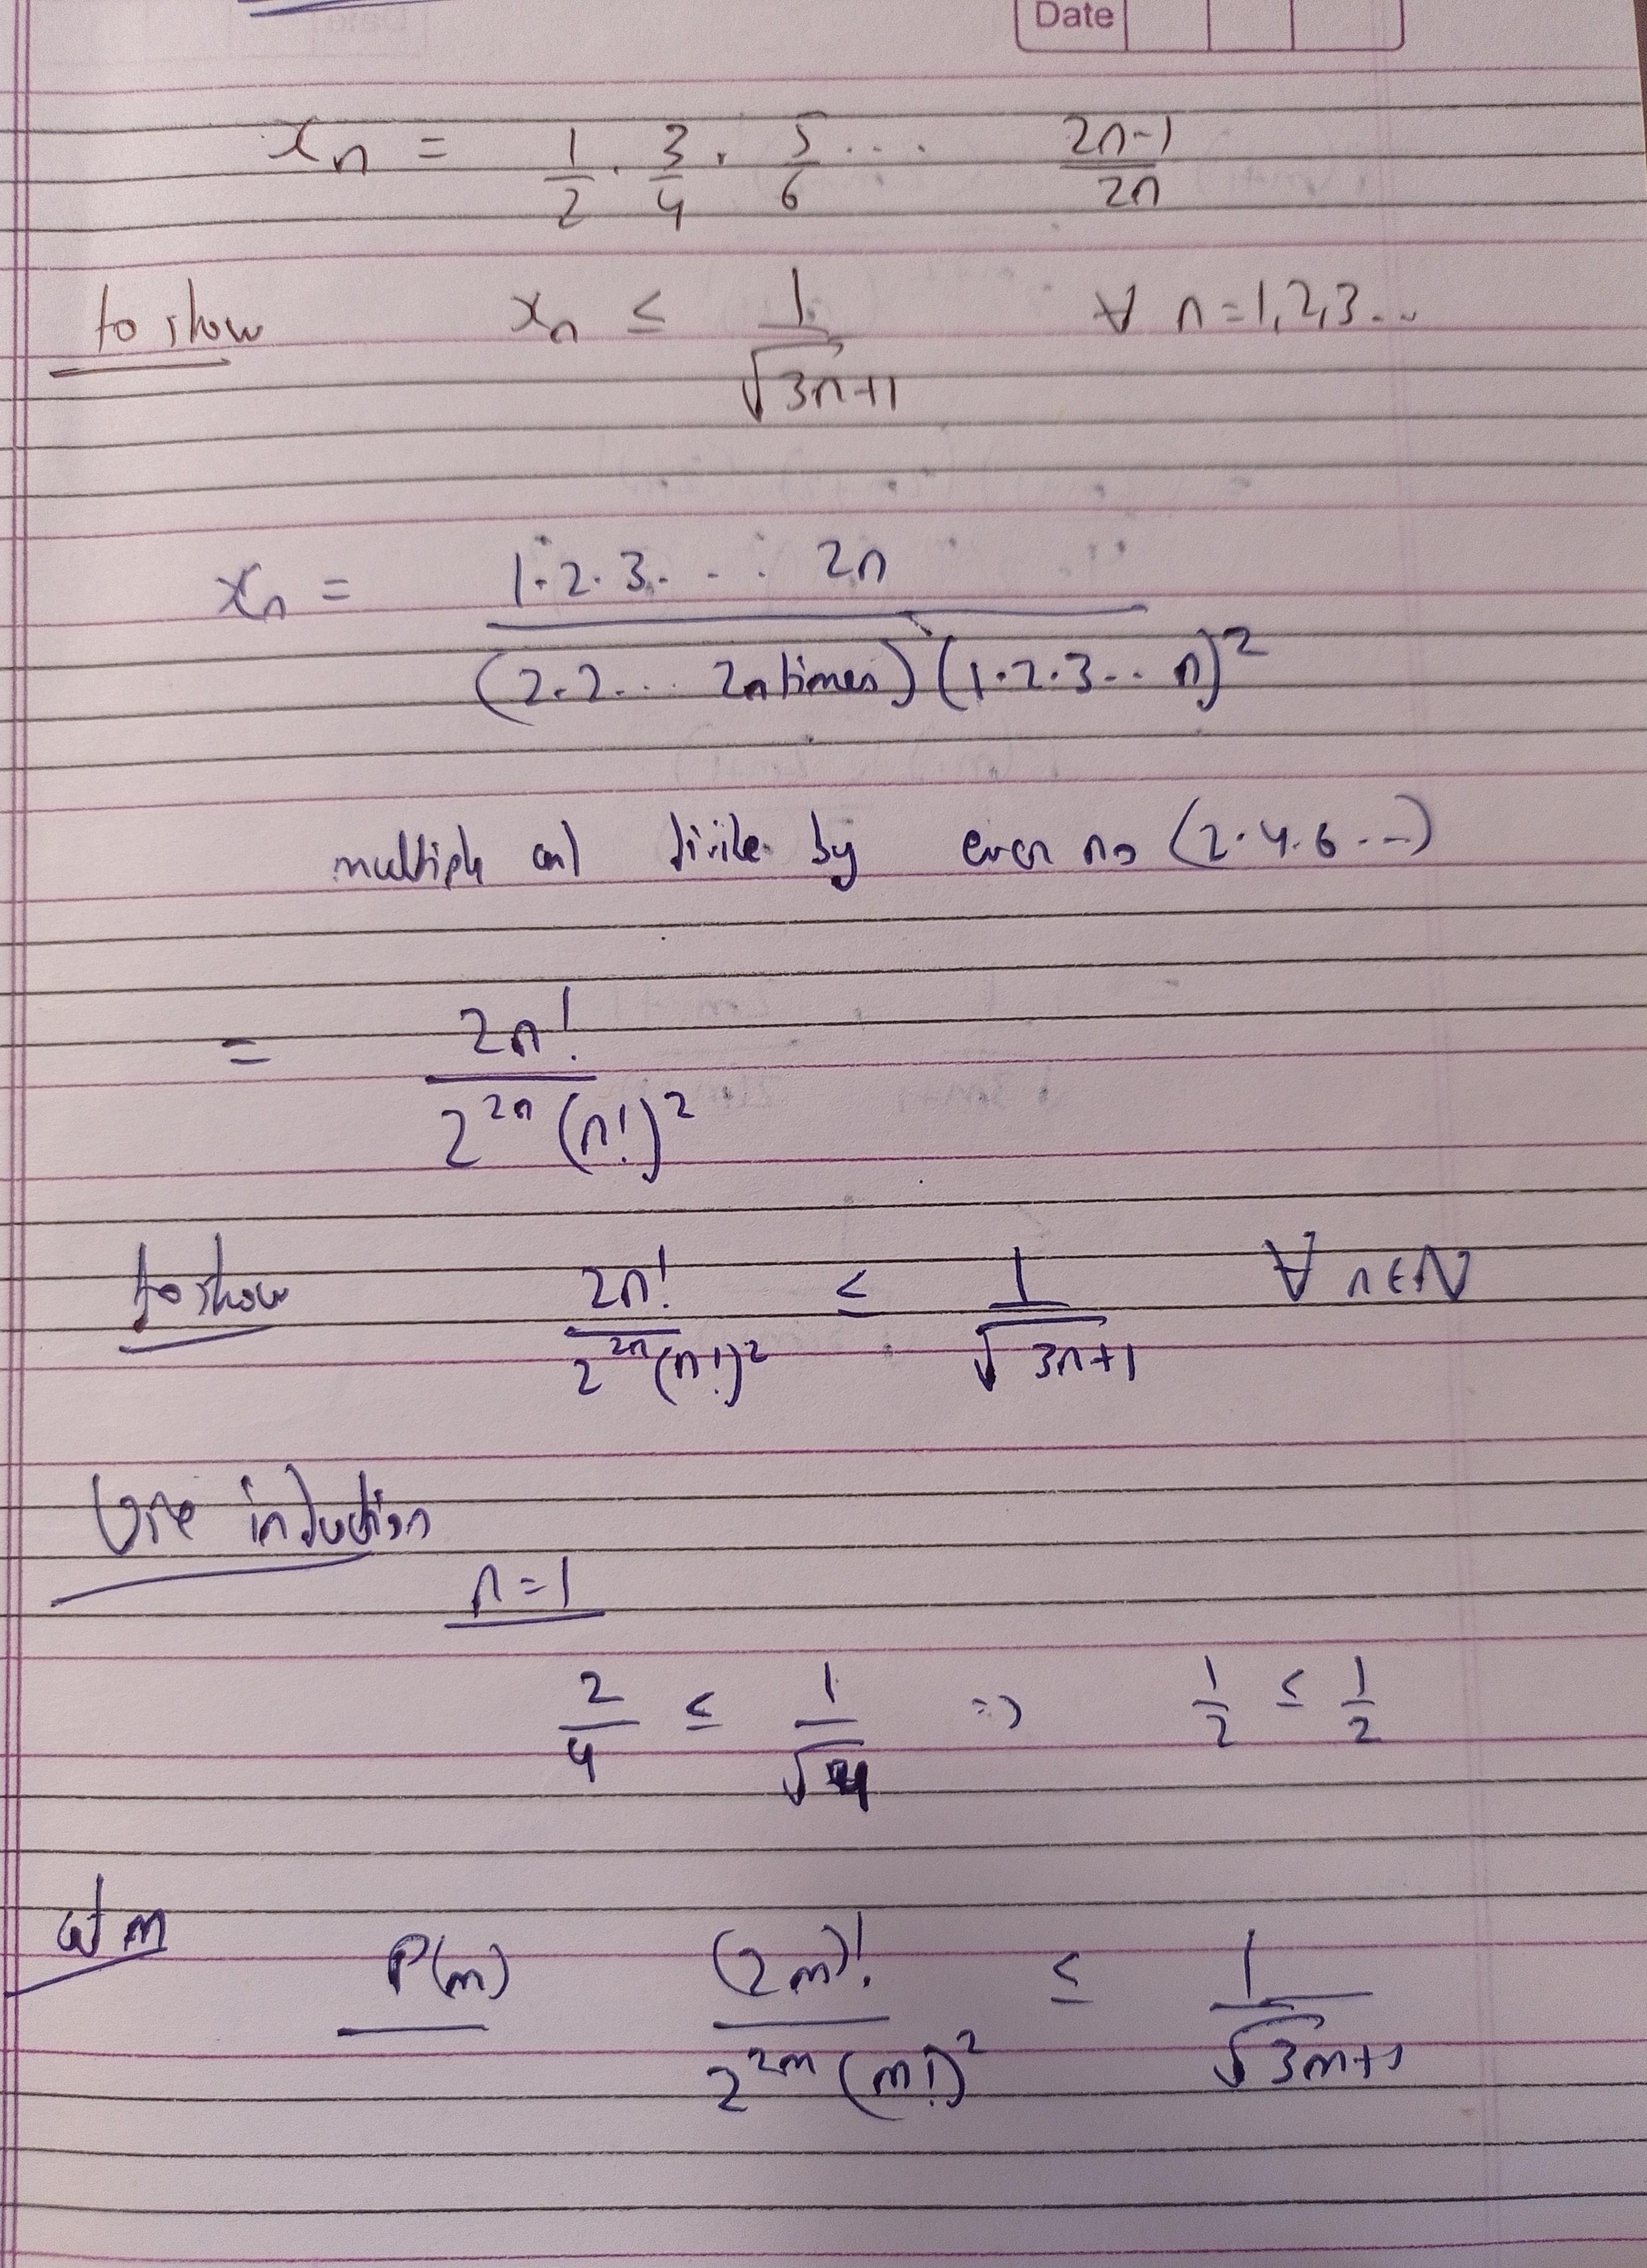 Date
xₙ = 1/2 · 3/4 · 5/6 ... (2n-1)/2n
to show xₙ ≤ 1/√(3n+1) ∀ n=1,2,3...
xₙ = 1·2·3. . . 2n / (2·2... 2n times)(1·2·3.. n)²
multiple and divide by even no (2·4·6...)
= 2n! / 2²ⁿ(n!)²
to show 2n! / 2²ⁿ(n!)² ≤ 1/√(3n+1) ∀ n∈N
Use induction
n=1
2/4 ≤ 1/√4 => 1/2 ≤ 1/2
at m P(m) (2m)! / 2²ᵐ(m!)² ≤ 1/√(3m+1)